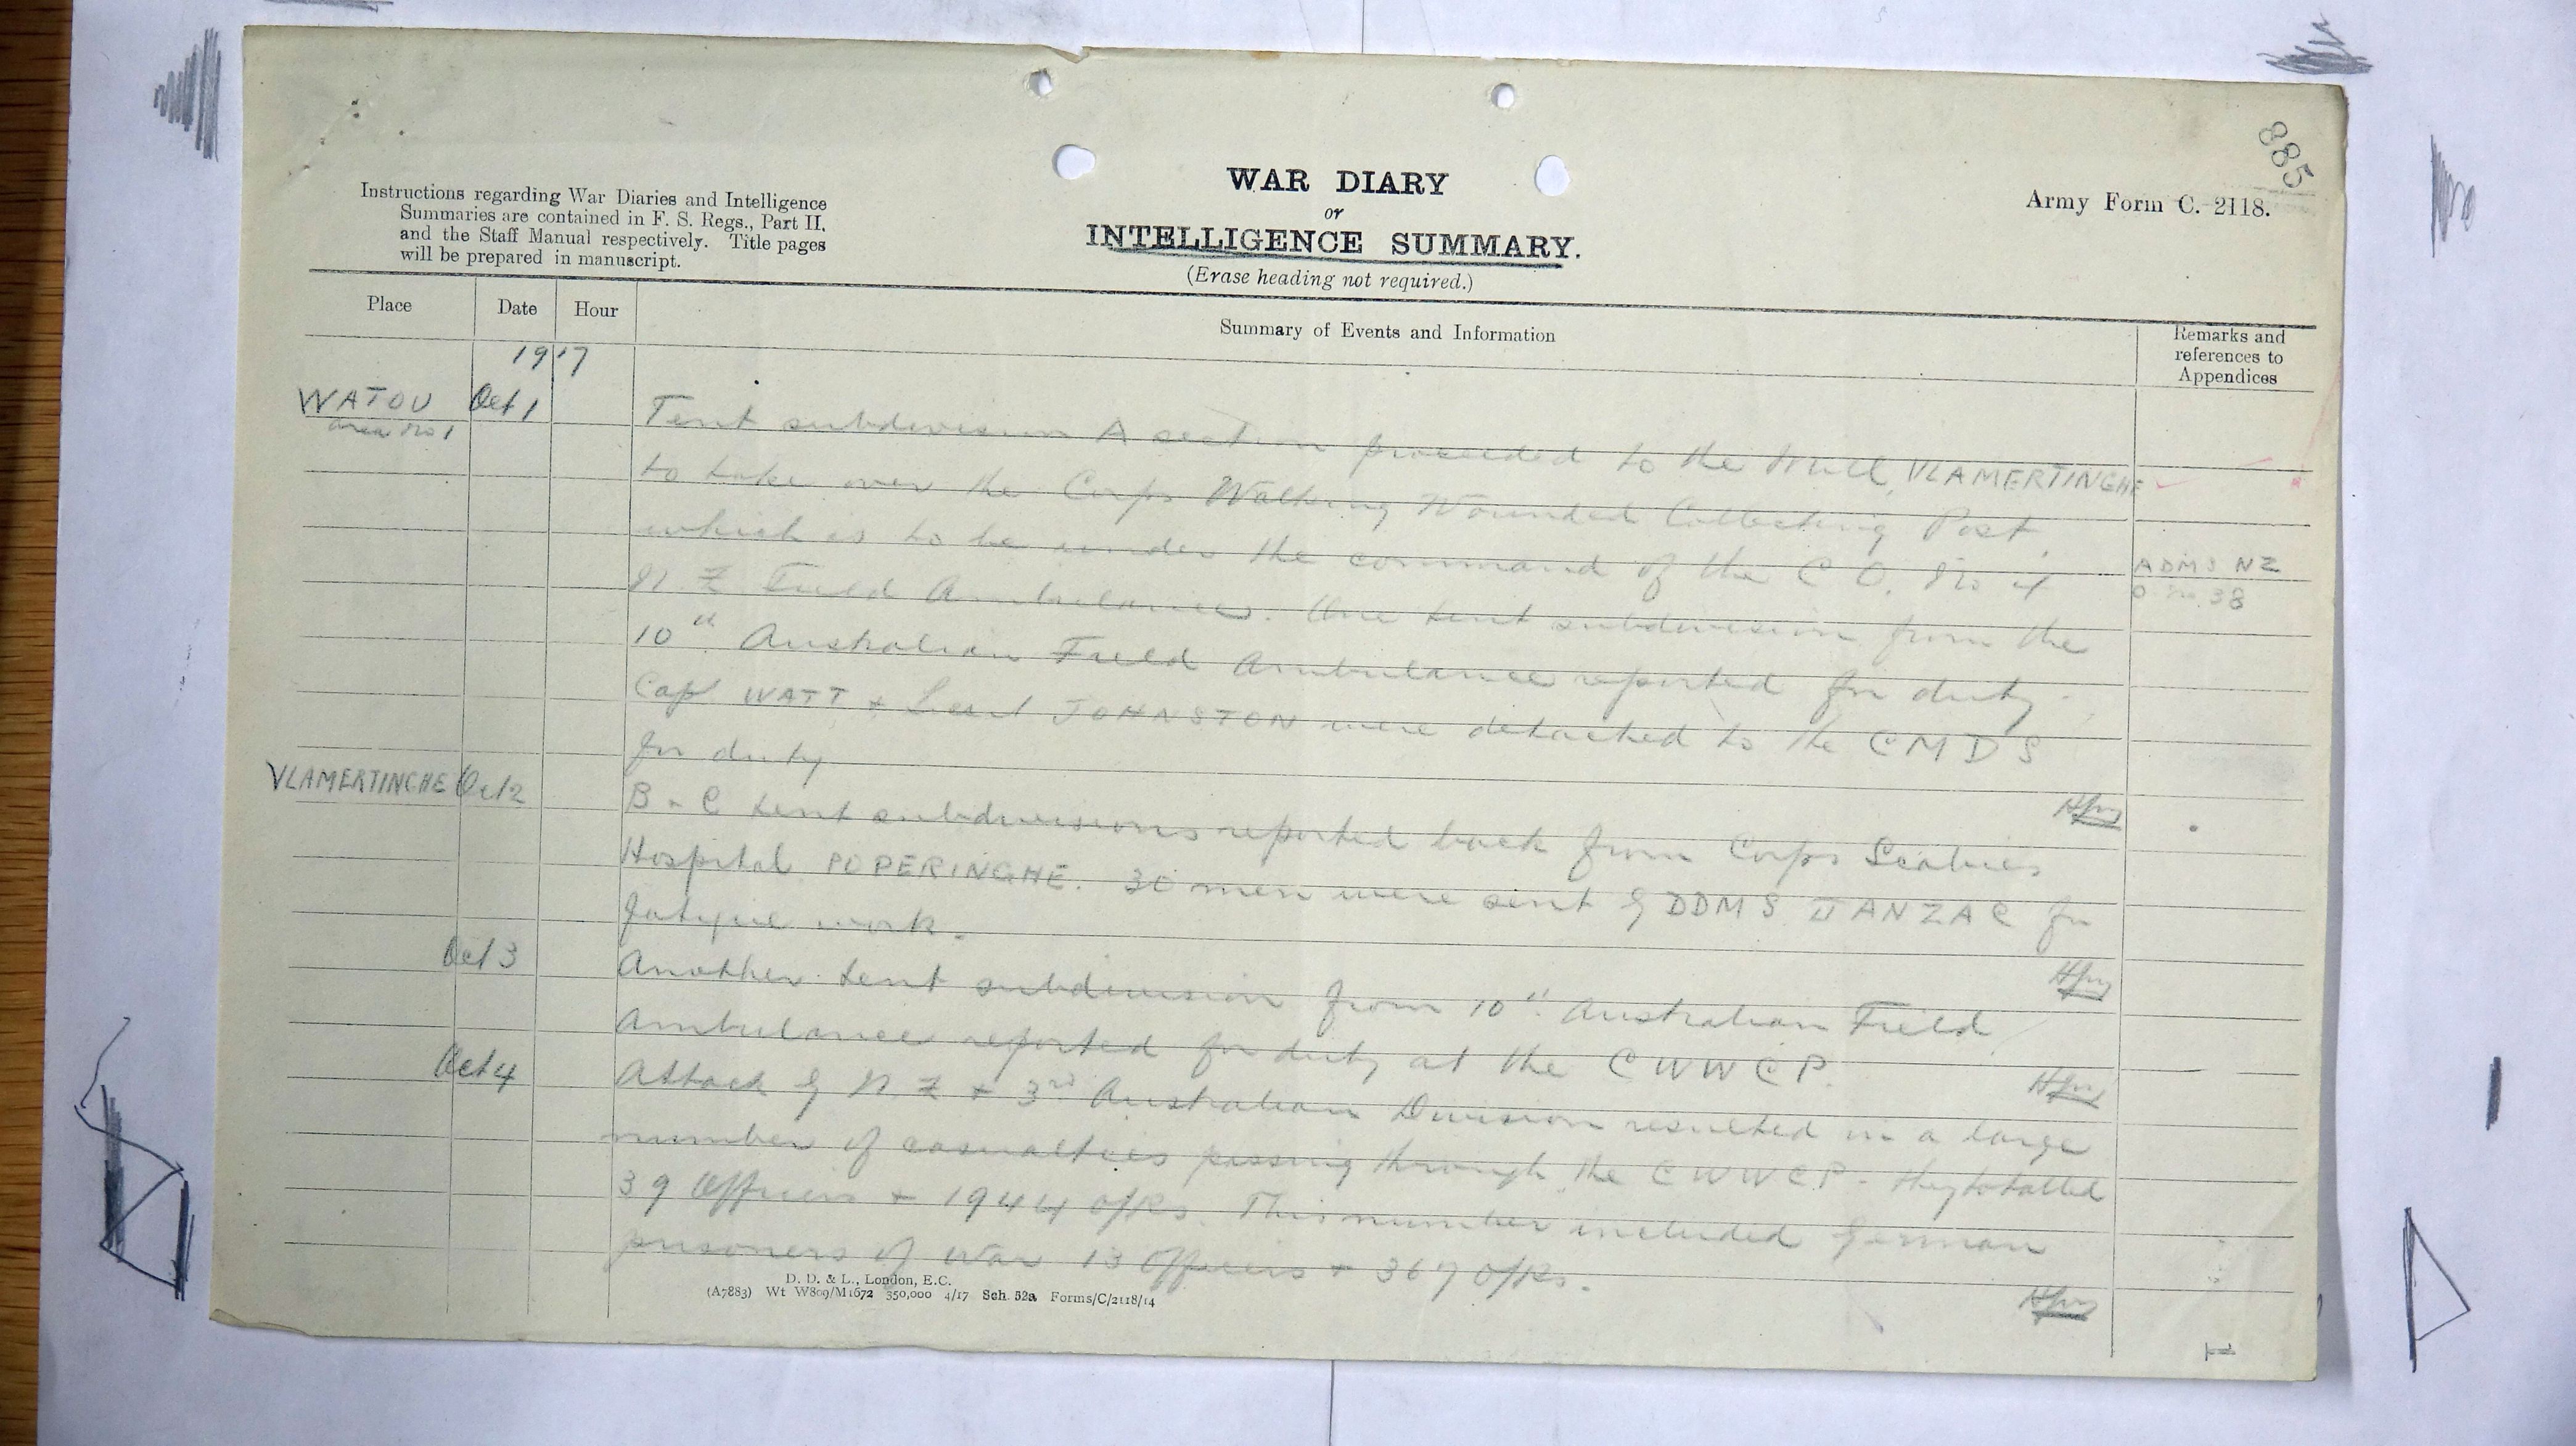 885
Instructions regarding War Diaries and Intelligence
Summaries are contained in F. S. Regs., Part II.
and the Staff Manual respectively. Title pages
will be prepared in manuscript.
WAR DIARY
or
INTELLIGENCE SUMMARY.
(Erase heading not required.)
Army Form C. 2118.
Place Date Hour Summary of Events and Information Remarks and
references to
Appendices
1917
WATOU Oct 1 Tent subdivision A section proceeded to the Mill, VLAMERTINGHE
area No 1
to take over the Corps Walking Wounded Collecting Post,
which is to be under the command of the C O. No 4 ADMS NZ
N. Z Field Ambulance. One tent subdivision from the O No. 38
10th Australian Field Ambulance reported for duty.
Capt WATT + Lieut JOHNSTON were detached to the C M D S
for duty
VLAMERTINGHE Oct 2 B + C tent subdivisions reported back from Corps Scabies
Hospital POPERINGHE. 30 men were sent by DDMS II ANZAC for
fatigue work.
Oct 3 Another tent subdivision from 10th Australian Field
Ambulance reported for duty at the C W W C P.
Oct 4 Attack by N Z + 3rd Australian Division resulted in a large
number of casualties passing through the C W W C P - they totalled
39 Officers + 1944 O/Rs. This number included German
prisoners of war 13 Officers + 367 O/Rs.
D. D. & L., London, E.C.
(A7883) Wt W809/M1672 350,000 4/17 Sch. 52a Forms/C/2118/14
1